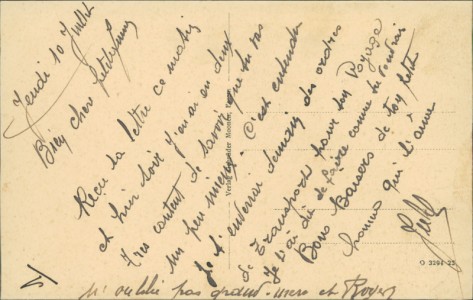 Jeudi 10 Juillet
Bien cher petite femme
Reçu ta lettre ce matin
et hier soir j'en ai eu deux
Très content de savoir que tu vas
un peu mieux. C'est entendu
Je t'enverrai demain des ordres
de Transports pour ton Voyage
Je t'ai dit de faire comme tu voudrai
Bons Baisers de ton petit
homme qui t'aime
n'oublie pas grand-mère et
Verlag
O 3294 23